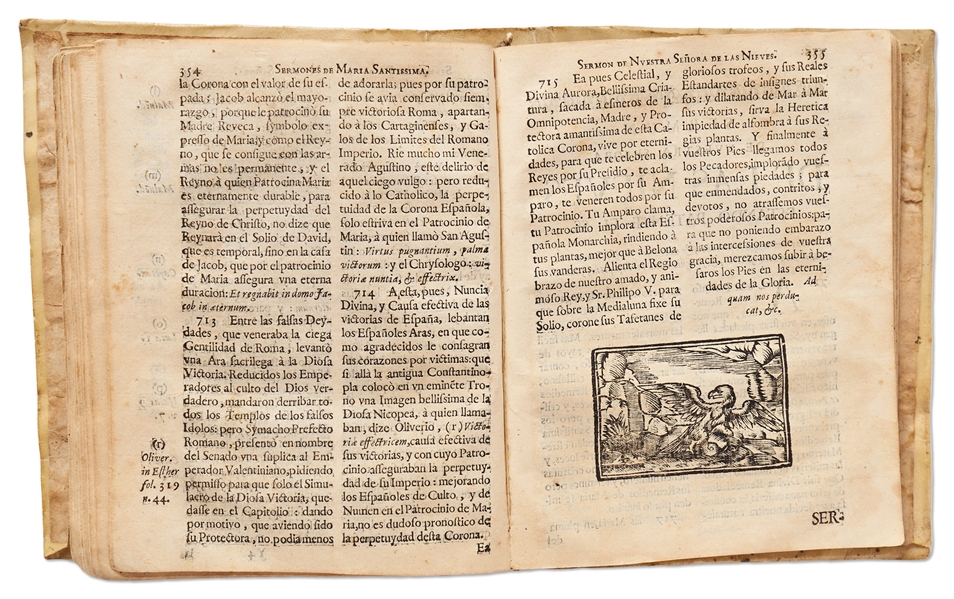 354 SERMONES DE MARIA SANTISSIMA.
la Corona con el valor de su es-
pada; Jacob alcanzó el mayo-
razgo, porque le patrocinó su
Madre Reveca, symbolo ex-
presso de Maria; y como el Rey-
no, que se consigue con las ar-
mas no es permanente, y el
Reyno à quien Patrocina Maria
es eternamente durable, para
assegurar la perpetuydad del
Reyno de Christo, no dize que
Reynarà en el Solio de David,
que es temporal, sino en la casa
de Jacob, que por el patrocinio
de Maria assegura vna eterna
duracion: Et regnabit in domo Ja-
cob in æternum.
713 Entre las falsas Dey-
dades, que veneraba la ciega
Gentilidad de Roma, levantò
vna Ara sacrilega à la Diosa
Victoria. Reducidos los Empe-
radores al culto del Dios ver-
dadero, mandaron derribar to-
dos los Templos de los falsos
Idolos: pero Symacho Prefecto
Romano, presentò en nombre
del Senado vna suplica al Em-
perador Valentiniano, pidiendo
permisso para que solo el Simu-
lacro de la Diosa Victoria, que-
dasse en el Capitolio: dando
por motivo, que aviendo sido
su Protectora, no podia menos
(r)
Oliver.
in Esther
fol. 319
n. 44.
de adorarla; pues por su patro-
cinio se avia conservado siem
pre victoriosa Roma, apartan-
do à los Cartaginenses, y Ga-
los de los Limites del Romano
Imperio. Rie mucho mi Vene-
rado Agustino, este delirio de
aquel ciego vulgo: pero redu-
cido à lo Catholico, la perpe-
tuidad de la Corona Española,
solo estriva en el Patrocinio de
Maria, à quien llamò San Agus-
tin: Virtus pugnantium, palma
victorum: y el Chrysologo: vi-
ctoriæ nuntia, & effectrix.
714 A esta, pues, Nuncia
Divina, y Causa efectiva de las
victorias de España, lebantan
los Españoles Aras, en que co-
mo agradecidos le consagran
sus corazones por victimas: que
si allà la antigua Constantino-
pla colocò en vn eminẽte Tro-
no vna Imagen bellissima de la
Diosa Nicopea, à quien llama-
ban, dize Oliverio, (r) Victo-
riæ effectricem, causa efectiva de
sus victorias, y con cuyo Patro-
cinio asseguraban la perpetuy-
dad de su Imperio: mejorando
los Españoles de Culto, y de
Numen en el Patrocinio de Ma-
ria, no es dudoso pronostico de
la perpetuydad desta Corona.
Ea
SERMON DE NVESTRA SEÑORA DE LAS NIEVES. 355
715 Ea pues Celestial, y
Divina Aurora, Bellissima Cria-
tura, sacada à esmeros de la
Omnipotencia, Madre, y Pro-
tectora amantissima de esta Ca-
tolica Corona, vive por eterni-
dades, para que te celebren los
Reyes por su Presidio, te acla-
men los Españoles por su Am-
paro, te veneren todos por su
Patrocinio. Tu Amparo clama,
tu Patrocinio implora esta Es-
pañola Monarchia, rindiendo à
tus plantas, mejor que à Belona
sus vanderas. Alienta el Regio
brazo de nuestro amado, y ani-
moso Rey, y Sr. Philipo V. para
que sobre la Medialuna fixe su
Solio, corone sus Tafetanes de
gloriosos trofeos, y sus Reales
Estandartes de insignes triun-
fos: y dilatando de Mar à Mar
sus victorias, sirva la Heretica
impiedad de alfombra à sus Re-
gias plantas. Y finalmente à
vuestros Pies llegamos todos
los Pecadores, implorãdo vues-
tras inmensas piedades; para
que enmendados, contritos, y
devotos, no atrassemos vues-
tros poderosos Patrocinios: pa-
ra que no poniendo embarazo
à las intercessiones de vuestra
gracia, merezcamos subir à be-
saros los Pies en las eterni-
dades de la Gloria. Ad
quam nos perdu-
cat, &c.
SER-